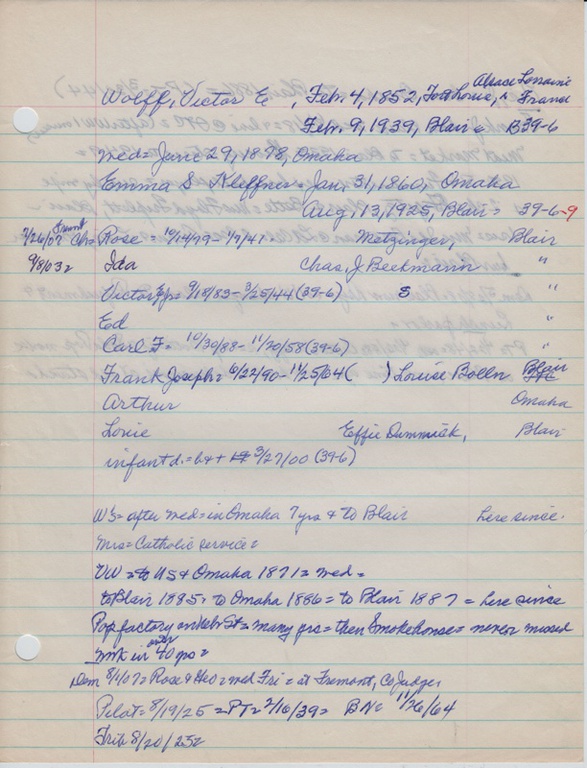 Alsace Lorraine
Wolff, Victor E , Feb. 4, 1852, ^ France
Feb. 9, 1939, Blair = B39-6
med = June 29, 1878, Omaha
Emma S Kleffner = Jan, 31, 1860, Omaha
Aug, 13, 1925, Blair = 39-6-9
7/26/07 Fremont Ch = Rose = 10/14/79 - 1/9/41 - Metzinger, Blair
9/8/03 = Ida Chas. J. Beekmann "
Victor E Jr = 9/18/83 - 3/25/44 (39-6) S "
Ed "
Carl F = 10/30/88 - 11/20/58 (39-6)
Frank Joseph = 6/22/90 - 11/25/64 ( ) Louise Bolln Blair
Arthur Omaha
Louie Effie Dummick, Blair
infant d. = b + + 3/27/00 (39-6)
W's = after med = in Omaha 7 yrs & to Blair here since.
Mrs = Catholic service =
VW = to US & Omaha 1871 = med =
to Blair 1885 = to Omaha 1886 = to Blair 1887 = here since
Pop factory on Nebr St = many yrs = then Smokehouse = never missed
wk in over 40 yrs =
Dem 8/1/07 = Rose & Geo = med Fri = at Fremont, Co Judge,
Pilot = 8/19/25 = PT = 2/16/39 = BN = 11/26/64
Trib 8/20/25 =